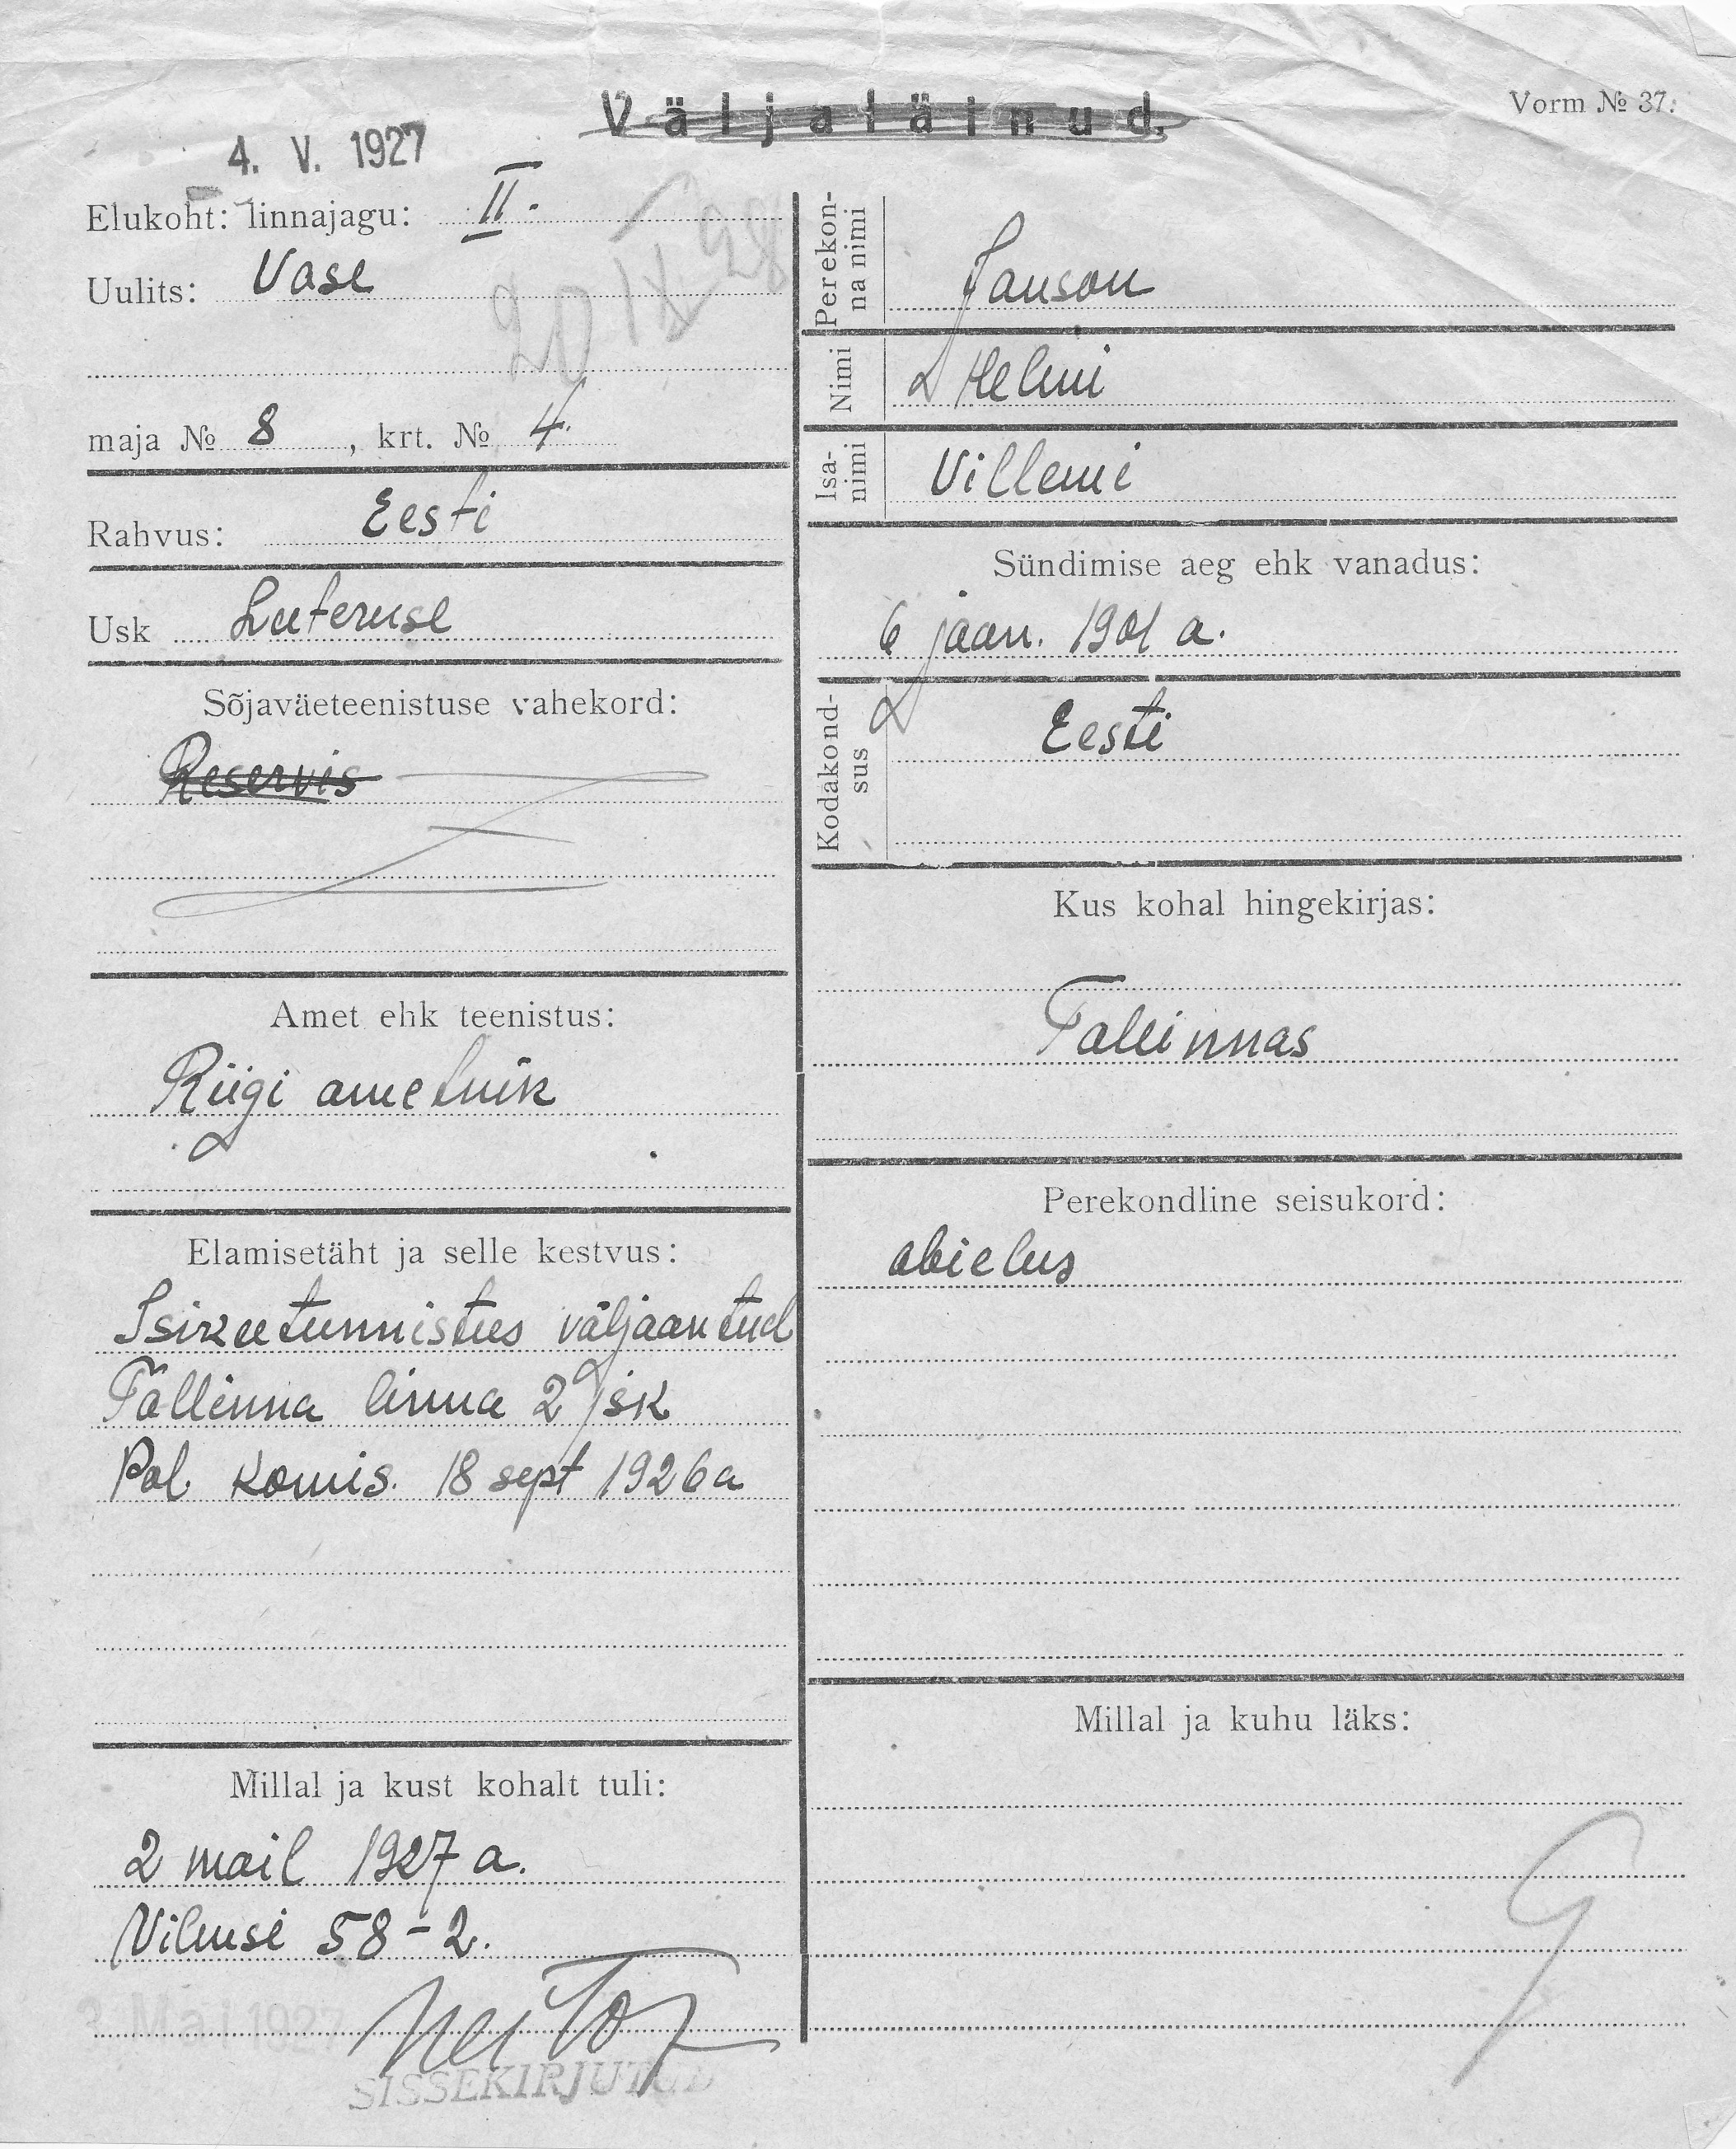 Väljaläinud.
Vorm № 37.
4. V. 1927
Elukoht: linnajagu: II.
20 IX 28
Uulits: Vase
maja № 8, krt. № 4.
Rahvus: Eesti
Usk Luteruse
Sõjaväeteenistuse vahekord:
Reservis
Amet ehk teenistus:
Riigi ametnik
Elamisetäht ja selle kestvus:
Isikutunnistus väljaantud
Tallinna linna 2 jsk
Pol. komis. 18 sept 1926 a
Millal ja kust kohalt tuli:
2 mail 1927 a.
Vilmsi 58-2.
3 Mai 1927
SISSEKIRJUTUD
Perekon-
na nimi
Janson
Nimi
Helmi
Isa-
nimi
Villemi
Sündimise aeg ehk vanadus:
6 jaan. 1901 a.
Kodakond-
sus
Eesti
Kus kohal hingekirjas:
Tallinnas
Perekondline seisukord:
abielus
Millal ja kuhu läks: